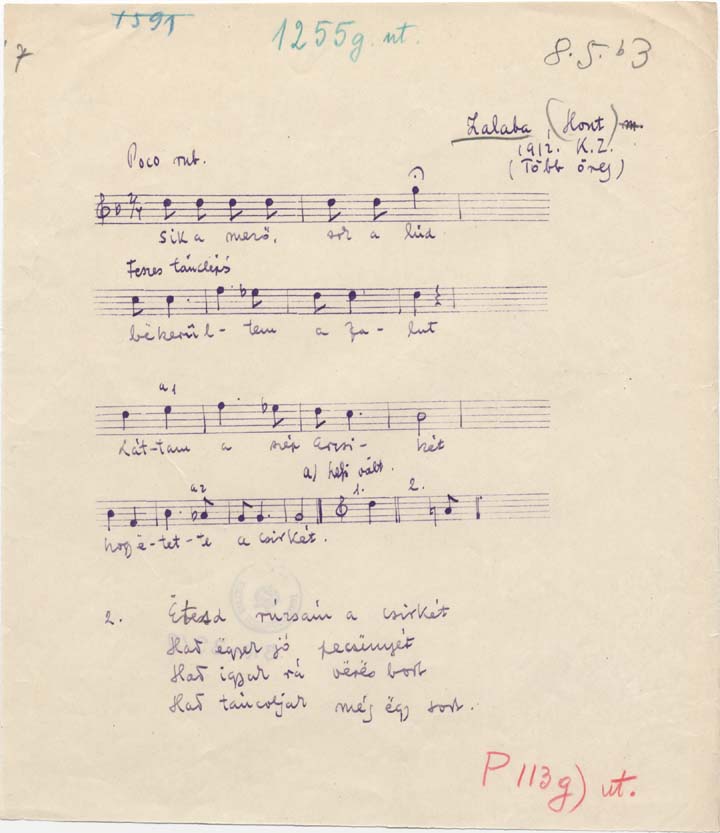 1591
1255g. ut.
8.5.63
Zalaba (Hont) m.
1912. K.Z.
(Több öreg)
Poco rub.
2/4
Sik a mező, sir a lúd
Feszes tánclépés
békerűl-tem a za-lut
a1
Lát-tam a szép Erzsi-két
a) helyi vált.
a2
1.
2.
hogy ë-tet-te a csirkét.
2. Étesd rúzsám a csirkét
Had ëgyek jó pecsënyét
Had igyak rá vërës bort
Had táncoljak még ëgy sort.
P 113g) ut.